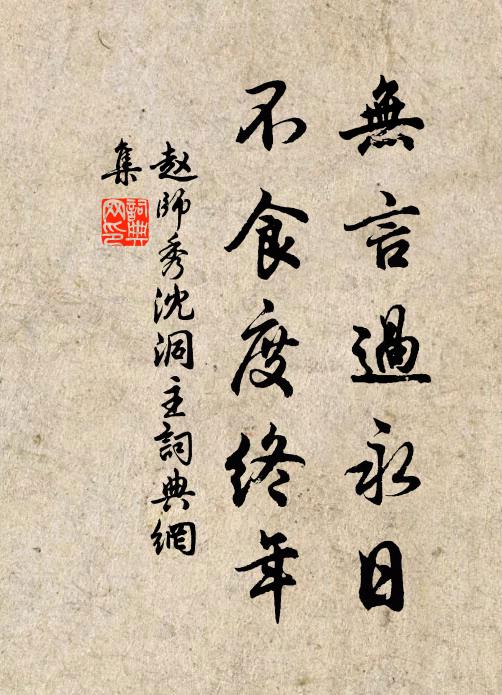 無言過永日
不食度終年
赵師秀沈洞主詞典網
集
詞典
网印